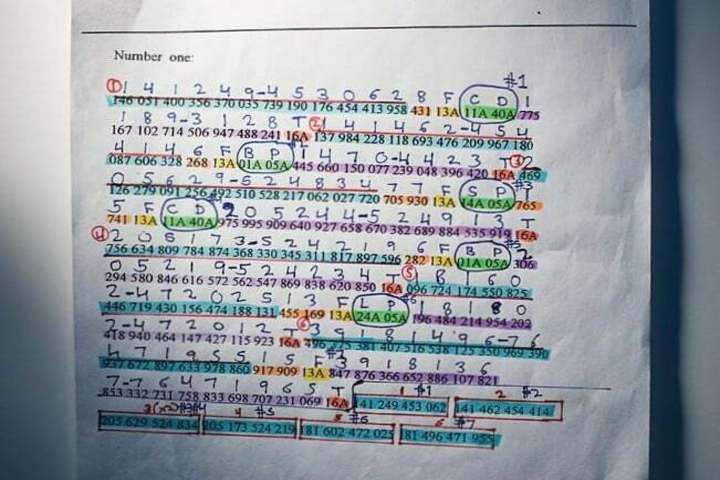 Number one:
#1
① 1 4 1 2 4 9-4 5 3 0 6 2 8 F C D 1
146 051 400 356 370 035 739 190 176 454 413 958 431 13A 11A 40A 775
1 8 9-3 1 2 8 T ② 1 4 1 4 6 2-4 5 4
167 102 714 506 947 488 241 16A 137 984 228 118 693 476 209 967 180
4 1 4 6 F B P 1 4 7 0-4 4 2 3 T ③ 2
087 606 328 268 13A 01A 05A 445 660 150 077 239 048 396 420 16A 469
0 5 6 2 9-5 2 4 8 3 4 7 7 F S P #3
126 279 091 256 492 510 528 217 062 027 720 705 930 13A 14A 05A 765
5 F C D 2 0 5 2 4 4-5 2 4 9 1 3 T
741 13A 11A 40A 975 995 909 640 927 658 670 382 689 884 535 919 16A
④ 2 0 5 1 7 3-5 2 4 2 1 9 6 F B P #5 2
756 634 809 784 874 368 330 345 311 817 897 596 282 13A 01A 05A 306
0 5 2 1 9-5 2 4 2 3 4 T ⑤ 1 8 1 6 0
294 580 846 616 572 562 547 869 838 620 850 16A 096 724 174 550 825
2-4 7 2 0 2 5 1 3 F L P #6 1 8 1 8 0
446 719 430 156 474 188 131 455 169 13A 24A 05A 196 484 214 954 202
2-4 7 2 0 1 2 T ⑥ 3 9 1 8 1 4 9 6-7 6
418 940 464 147 427 115 923 16A 496 375 381 407 516 538 125 350 969 390
4 7 1 9 5 5 1 5 F 3 9 1 8 1 3 6
937 672 897 633 978 860 917 909 13A 847 876 366 652 886 107 821
7-7 6 4 7 1 9 6 5 T 1 #1 2 #2
853 332 731 758 833 698 707 231 069 16A 41 249 453 062 141 462 454 414
#3 #4 4 #5 5 #6 6 #7
205 629 524 834 205 173 524 219 81 602 472 025 81 496 471 955